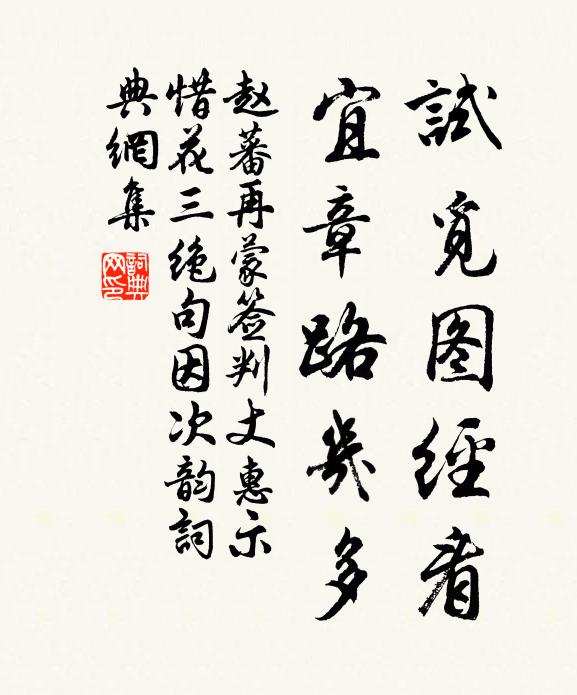 試覓图經看
宜章路幾多
赵蕃再蒙簽判丈惠示
惜花三绝句因次韵詞
典網集
詞典网印